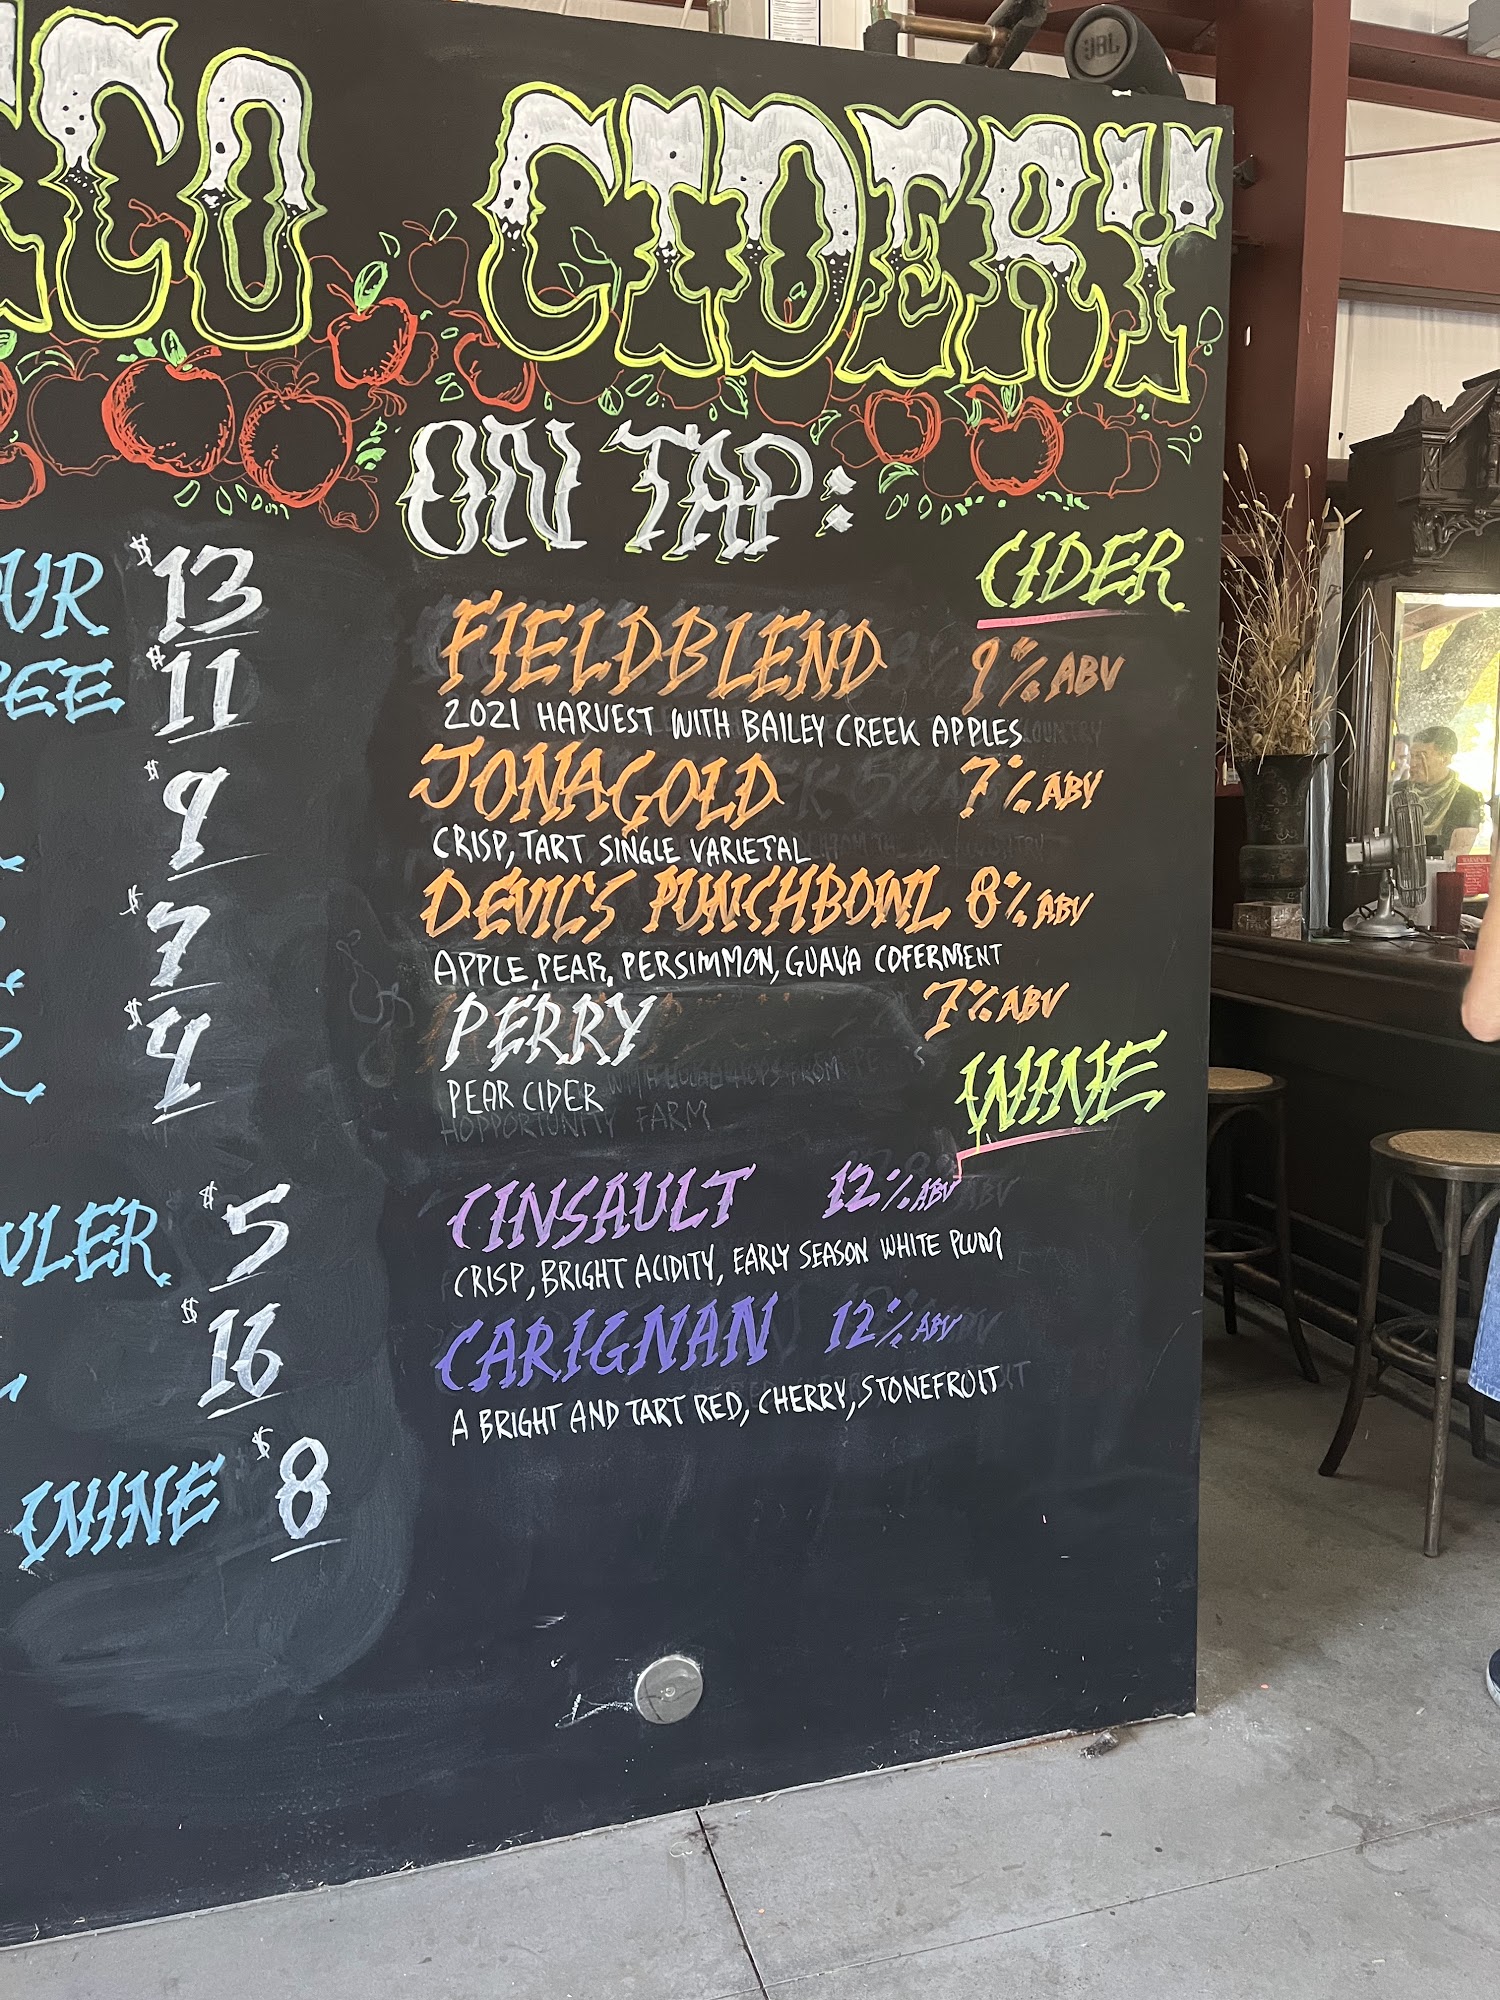 CO CIDERY
ON TAP:
CIDER
FIELDBLEND 9% ABV
2021 HARVEST WITH BAILEY CREEK APPLES
JONAGOLD 7% ABV
CRISP, TART SINGLE VARIETAL
DEVIL'S PUNCHBOWL 8% ABV
APPLE, PEAR, PERSIMMON, GUAVA COFERMENT
PERRY 7% ABV
PEAR CIDER
HOPPORTUNITY FARM
WINE
CINSAULT 12% ABV
CRISP, BRIGHT ACIDITY, EARLY SEASON WHITE PLUM
CARIGNAN 12% ABV
A BRIGHT AND TART RED, CHERRY, STONEFRUIT
UR $13
EE $11
$9
$7
$4
ULER $5
$16
WINE $8
JBL